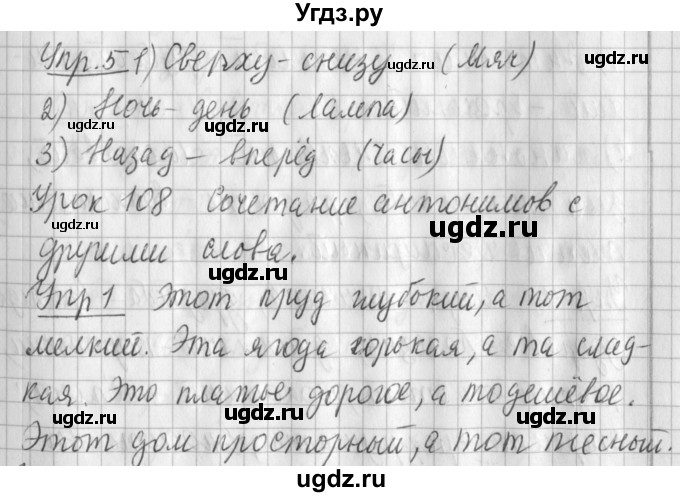 Угдз.ру
Упр.5 1) Сверху - снизу (Мяч)
2) Ночь - день (Лампа)
3) Назад - вперёд (Часы)
Урок 108 Сочетание антонимов с
другими слова.
Упр 1 Этот пруд глубокий, а тот
мелкий. Эта ягода горькая, а та слад-
кая. Это платье дорогое, а то дешёвое.
Этот дом просторный, а тот тесный.
ugdz.ru
ugdz.ru
ugdz.ru
ugdz.ru
ugdz.ru
ugdz.ru
ugdz.ru
ugdz.ru
ugdz.ru
ugdz.ru
ugdz.ru
ugdz.ru
ugdz.ru
ugdz.ru